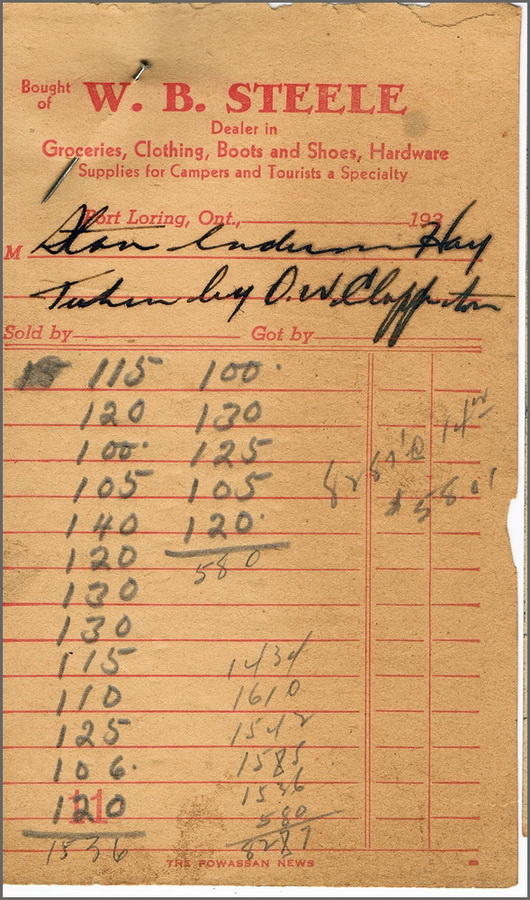 Bought
of
W. B. STEELE
Dealer in
Groceries, Clothing, Boots and Shoes, Hardware
Supplies for Campers and Tourists a Specialty
Port Loring, Ont., 193
M Stan Anderson Hay
Taken by O.W. Clapperton
Sold by Got by
115 100
120 130
100 125
105 105
140 120
120 580
130
130
115
110
125
106
120
1536
8287 @ 14 00
$58 01
1434
1610
1542
1585
1536
580
8287
11
THE POWASSAN NEWS